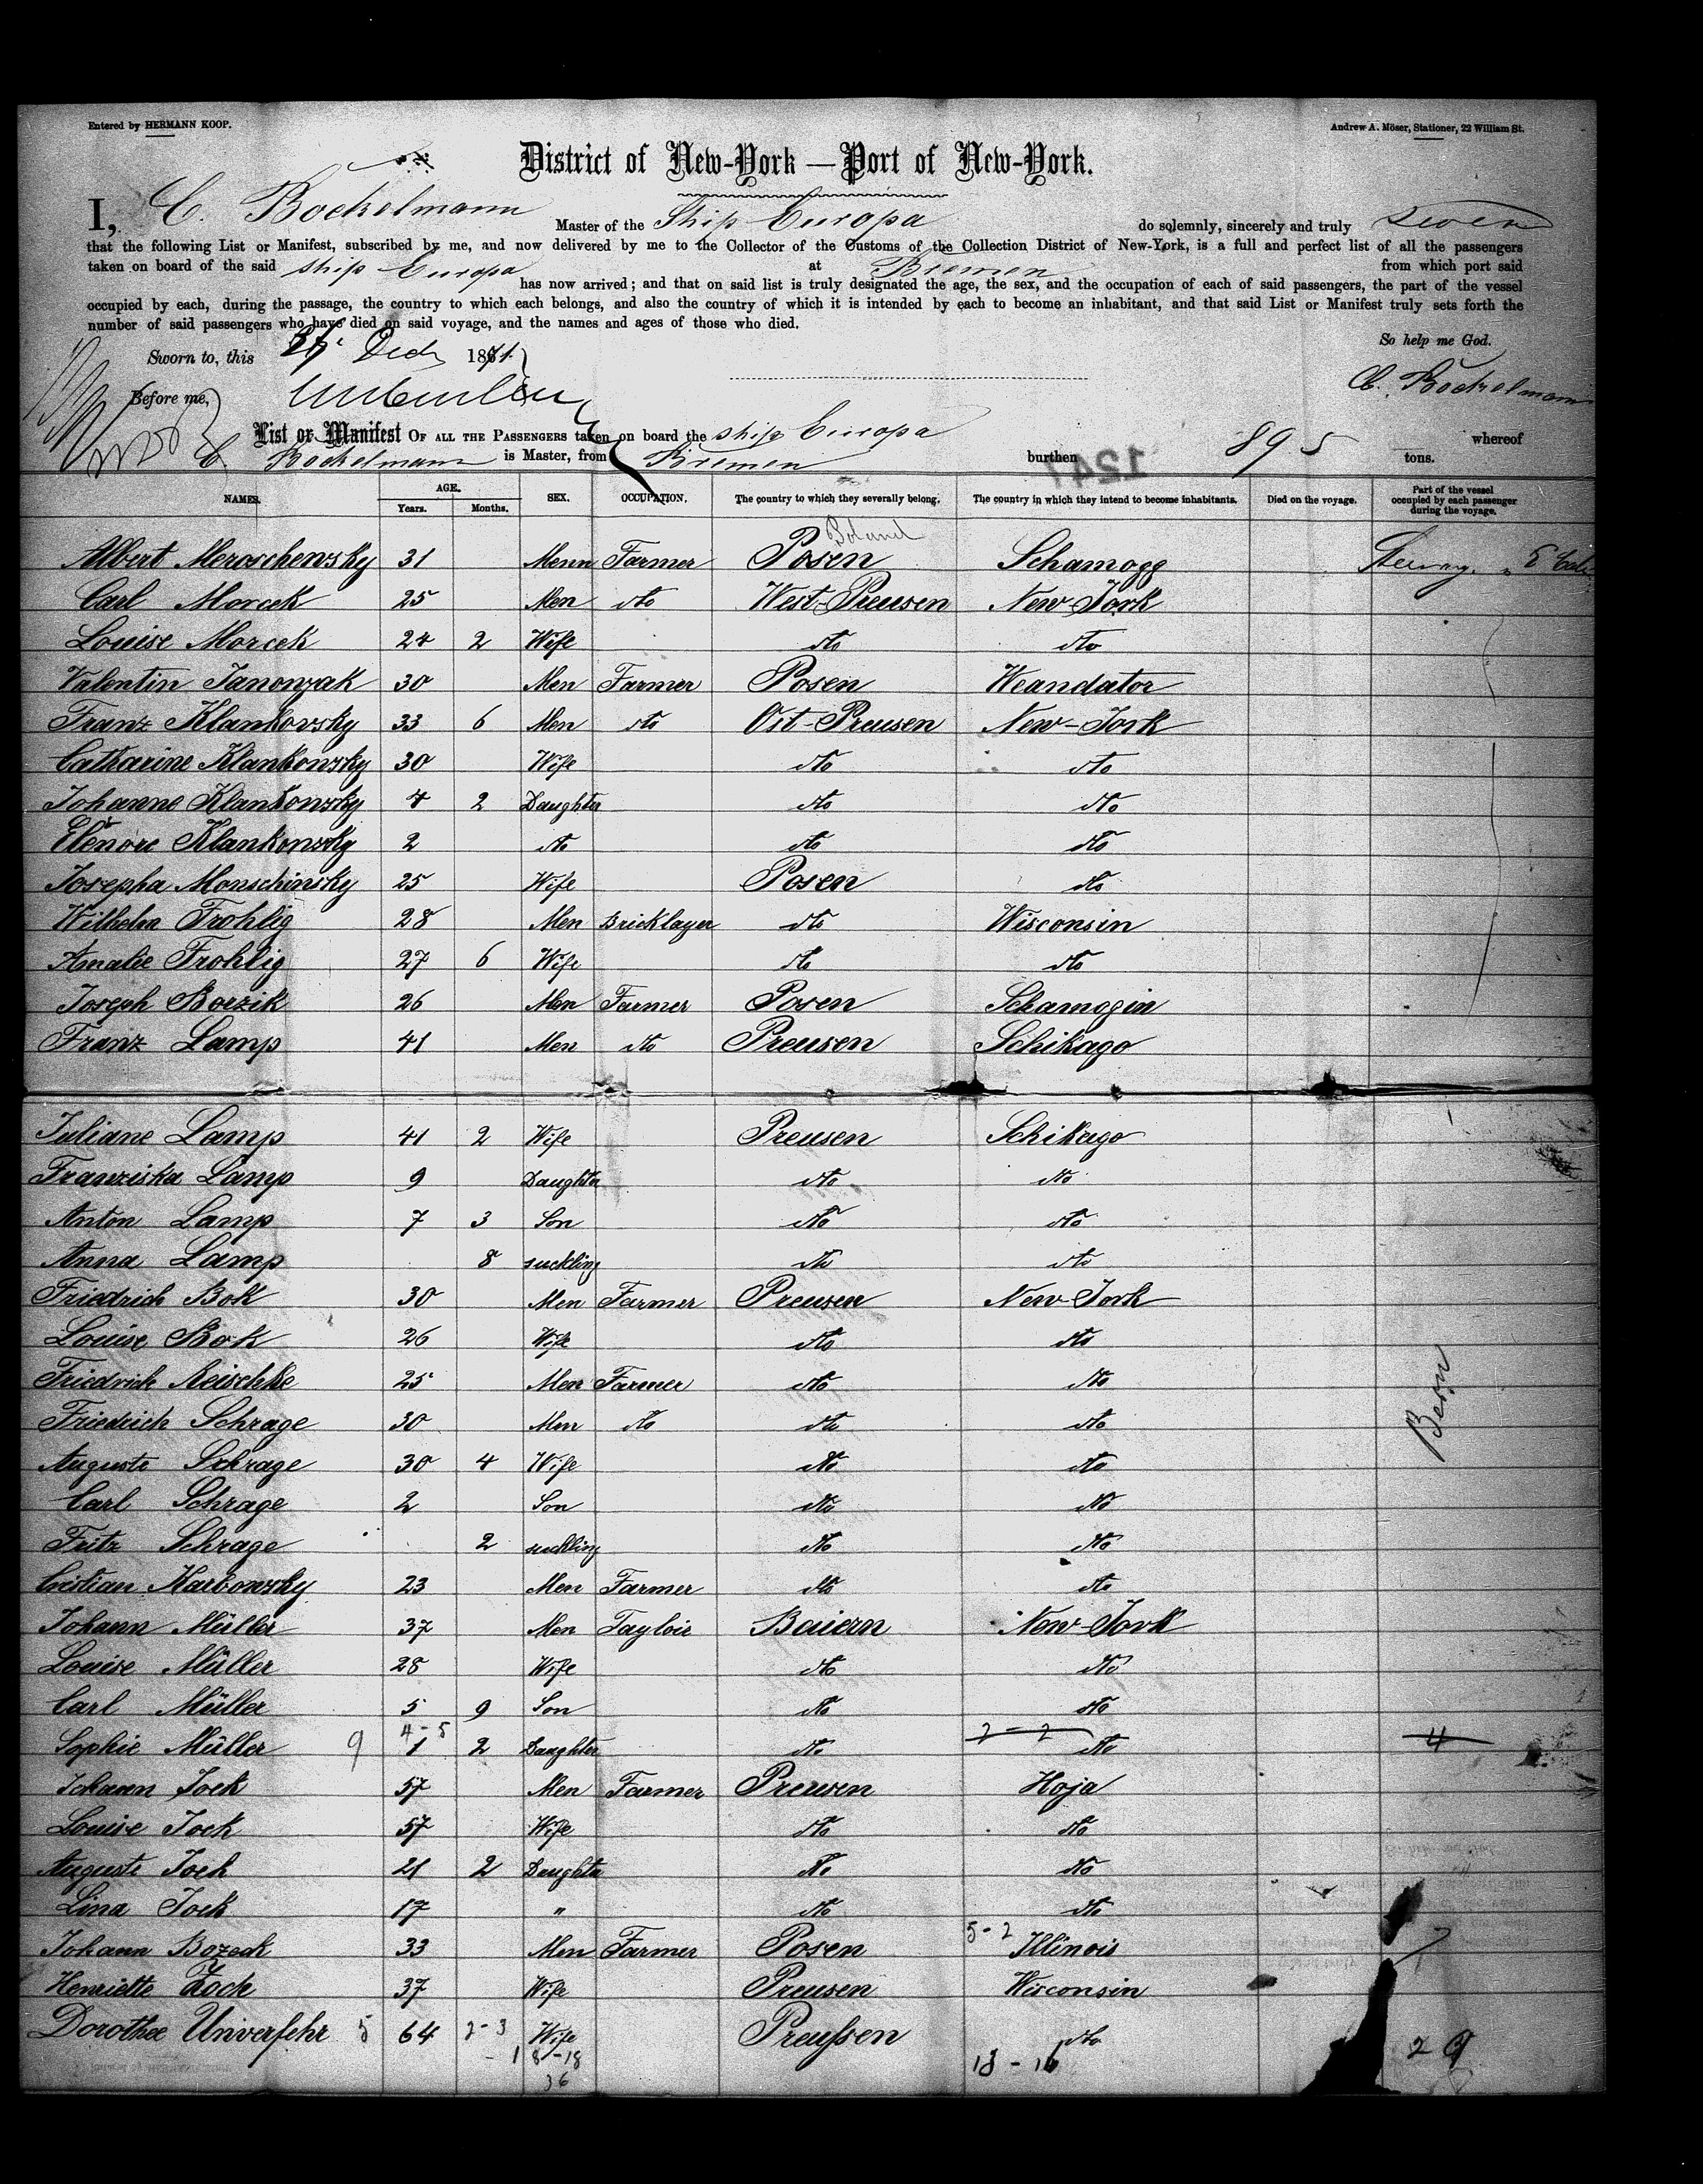 Entered by HERMANN KOOP.
Andrew A. Möser, Stationer, 22 William St.
District of New-York — Port of New-York.
I, C. Bockelmann Master of the Ship Europa do solemnly, sincerely and truly swear
that the following List or Manifest, subscribed by me, and now delivered by me to the Collector of the Customs of the Collection District of New-York, is a full and perfect list of all the passengers
taken on board of the said ship Europa at Bremen from which port said
has now arrived; and that on said list is truly designated the age, the sex, and the occupation of each of said passengers, the part of the vessel
occupied by each, during the passage, the country to which each belongs, and also the country of which it is intended by each to become an inhabitant, and that said List or Manifest truly sets forth the
number of said passengers who have died on said voyage, and the names and ages of those who died.
So help me God.
Sworn to, this Dec 18
C. Bockelmann
Before me,
List or Manifest OF ALL THE PASSENGERS taken on board the ship Europa whereof
C Bockelmann is Master, from Bremen burthen 895 tons.
1247
NAMES. AGE. Years. Months. SEX. OCCUPATION. The country to which they severally belong. The country in which they intend to become inhabitants. Died on the voyage. Part of the vessel occupied by each passenger during the voyage.
Poland
Albert Meroschewsky 31 Menn Farmer Posen Schamogg
Carl Morcek 25 Men dto West-Preusen New York
Louise Morcek 24 2 Wife dto dto
Valentin Janowzak 30 Men Farmer Posen Weandator
Franz Klankovsky 33 6 Men dto Ost-Preusen New-York
Catharine Klankowsky 30 Wife dto dto
Johanne Klankowsky 4 2 Daughter dto dto
Elenore Klankowsky 2 dto dto dto
Josepha Monschinsky 25 Wife Posen dto
Wilhelm Frohlig 28 Men Bricklayer dto Wisconsin
Amalie Frohlig 27 6 Wife dto dto
Joseph Borzik 26 Men Farmer Posen Schamogin
Franz Lamp 41 Men dto Preusen Schikago
Juliane Lamp 41 2 Wife Preusen Schikago
Franziska Lamp 9 Daughter dto dto
Anton Lamp 7 3 Son dto dto
Anna Lamp 8 suckling dto dto
Friedrich Bok 30 Men Farmer Preusen New York
Louise Bok 26 Wife dto dto
Friedrich Reischke 25 Men Farmer dto dto
Friedrich Schrage 30 Men dto dto dto
Auguste Schrage 30 4 Wife dto dto
Carl Schrage 2 Son dto dto
Fritz Schrage 2 suckling dto dto
Cristian Karbowsky 23 Men Farmer dto dto
Johann Müller 37 Men Tayloir Baiern New-York
Louise Müller 28 Wife dto dto
Carl Müller 5 9 Son dto dto
4-5 2-2
Sophie Müller 9 1 2 Daughter dto dto 4
Johann Jock 57 Men Farmer Preusen Hoja
Louise Jock 57 Wife dto dto
Auguste Jock 21 2 Daughter dto dto
Lina Jock 17 " dto dto
Johann Bozeck 33 Men Farmer Posen 5-2 Illinois
Henriette Zock 37 Wife Preusen Wisconsin
Dorothee Unverfehr 5 64 2-3 Wife Preußsen dto
-1 8-18 18-16 29
36